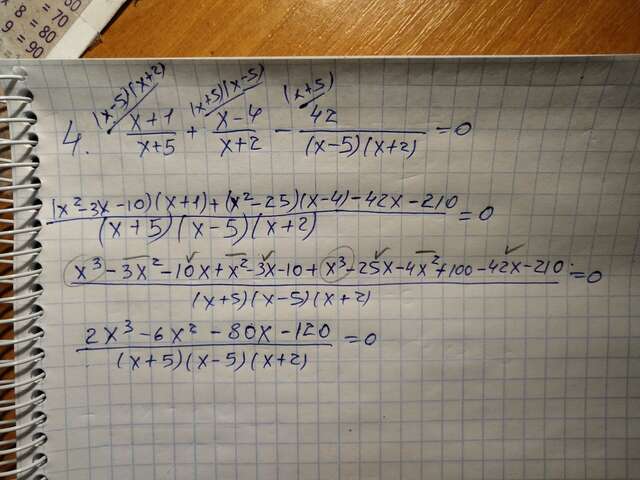 (x-5)(x+2) (x+5)(x-5) (x+5)
4. (x+1)/(x+5) + (x-4)/(x+2) - 42/((x-5)(x+2)) = 0
((x²-3x-10)(x+1)+(x²-25)(x-4)-42x-210)/((x+5)(x-5)(x+2)) = 0
(x³-3x²-10x+x²-3x-10+x³-25x-4x²+100-42x-210)/((x+5)(x-5)(x+2)) = 0
(2x³-6x²-80x-120)/((x+5)(x-5)(x+2)) = 0